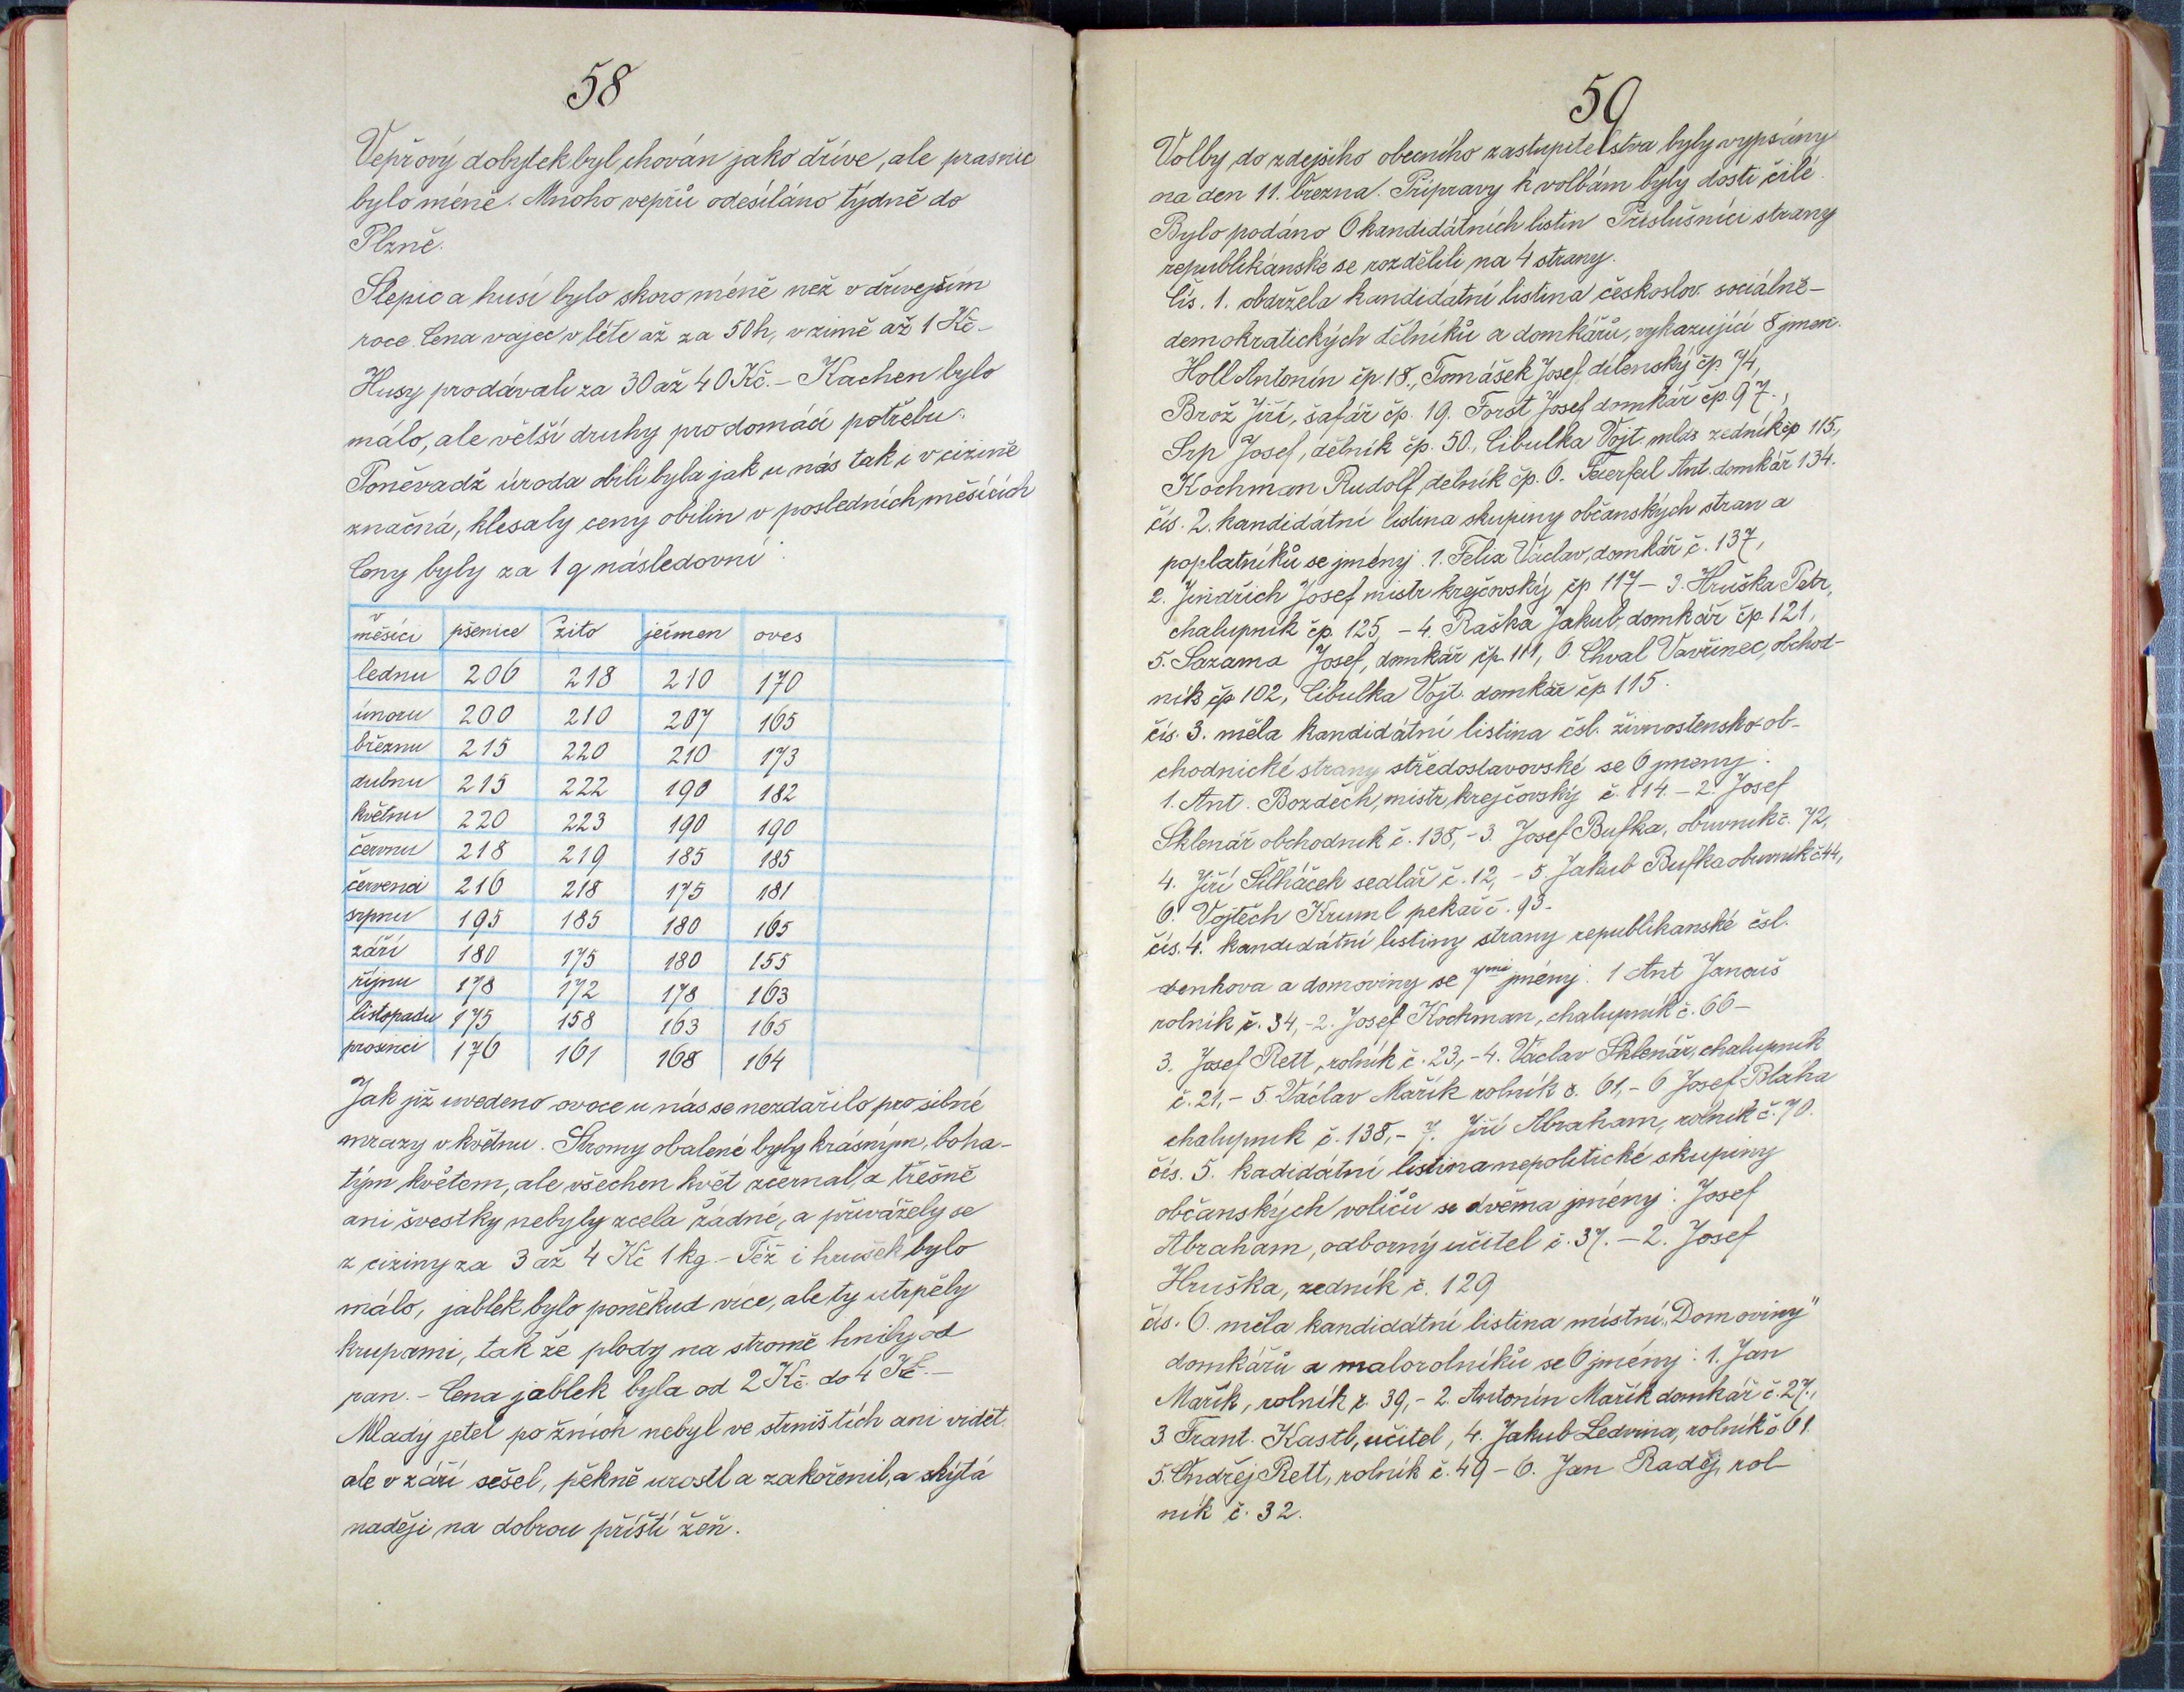 58
Vepřový dobytek byl chován jako dříve, ale prasnic
bylo méně. Mnoho vepřů odesíláno týdně do
Plzně.
Slepic a husí bylo skoro méně než v dřívejším
roce. Cena vajec v létě až za 50 h, v zimě až 1 Kč –
Husy prodávali za 30 až 40 Kč. – Kachen bylo
málo, ale větší druhy pro domácí potřebu.
Poněvadž úroda obilí byla jak u nás tak i v cizině
značná, klesaly ceny obilin v posledních měsících
Ceny byly za 1 q následovní:
v měsíci pšenice žito ječmen oves
lednu 206 218 210 170
únoru 200 210 207 165
březnu 215 220 210 173
dubnu 215 222 190 182
květnu 220 223 190 190
červnu 218 219 185 185
červenci 216 218 175 181
srpnu 195 185 180 165
září 180 175 180 155
říjnu 178 172 178 163
listopadu 175 158 163 165
prosinci 176 161 168 164
Jak již uvedeno ovoce u nás se nezdařilo pro silné
mrazy v květnu. Stromy obalené byly krásným, boha-
tým květem, ale všechen květ zčernal, a třešně
ani švestky nebyly zcela žádné, a přivážely se
z ciziny za 3 až 4 Kč 1 kg. – Též i hrušek bylo
málo, jablek bylo poněkud více, ale ty utrpěly
krupami, tak že plody na stromě hnily od
ran. – Cena jablek byla od 2 Kč. do 4 Kč. –
Mladý jetel po žních nebyl ve strništích ani vidět
ale v září sešel, pěkně urostl a zakořenil, a skýtá
naději na dobrou příští žeň.
59
Volby do zdejšího obecního zastupitelstva byly vypsány
na den 11. března. Přípravy k volbám byly dosti čilé.
Bylo podáno 6 kandidátních listin Příslušníci strany
republikánské se rozdělili na 4 strany.
Čís. 1. obdržela kandidátní listina českoslov. sociálně-
demokratických dělníků a domkářů, vykazující 8 jmen.
Holl Antonín čp. 18., Tomášek Josef, dílenský čp. 74,
Brož Jiří, šafář čp. 19. Forst Josef domkář čp. 97.,
Srp Josef, dělník čp. 50., Cibulka Vojt. mlds zedník čp 115.,
Kochman Rudolf, dělník čp. 6. Feierfeil Ant. domkář 134.
čís. 2. kandidátní listina skupiny občanských stran a
poplatníků se jmény: 1. Felix Václav, domkář č. 137,
2. Jindřich Josef mistr krejčovský čp 117 – 3. Hruška Petr,
chalupník čp. 125, – 4. Raška Jakub, domkář čp. 121,
5. Sazama Josef, domkář čp. 111, 6. Chval Vavřinec, obchod-
ník čp 102, Cibulka Vojt. domkář čp. 115.
čís. 3. měla kandidátní listina čsl. živnostensko-ob-
chodnické strany středostavovské se 6 jmeny:
1. Ant. Bozděch, mistr krejčovský č. 114. – 2. Josef
Sklenář obchodník č. 138, – 3. Josef Bufka, obuvník č. 72,
4. Jiří Šilháček sedlář č. 12, – 5 Jakub Bufka obuvník č 44,
6. Vojtěch Kruml pekař č. 93.
čís. 4. kandidátní listiny strany republikanské čsl.
venkova a domoviny se 7mi jmény: 1 Ant Janouš
rolník č. 34, – 2. Josef Kochman, chalupník č. 66 –
3. Josef Rett, rolník č. 23, – 4. Václav Sklenář, chalupník
č. 21, – 5. Václav Mařík rolník č. 61, – 6 Josef Blaha
chalupník č. 138, – 7. Jiří Abraham, rolník č. 70.
čís. 5. kadidátní listina nepolitické skupiny
občanských voličů se dvěma jmény: Josef
Abraham, odborný učitel č. 37. – 2. Josef
Hruška, zedník č. 129
čís. 6. měla kandidátní listina místní „Domoviny"
domkářů a malorolníků se 6 jmény: 1. Jan
Mařík, rolník č. 39, – 2. Antonín Mařík domkář č. 27,
3 Frant. Kastl, učitel, 4. Jakub Ledvina, rolník č 61.
5. Ondřej Rett, rolník č. 49 – 6. Jan Raděj, rol-
ník č. 32.